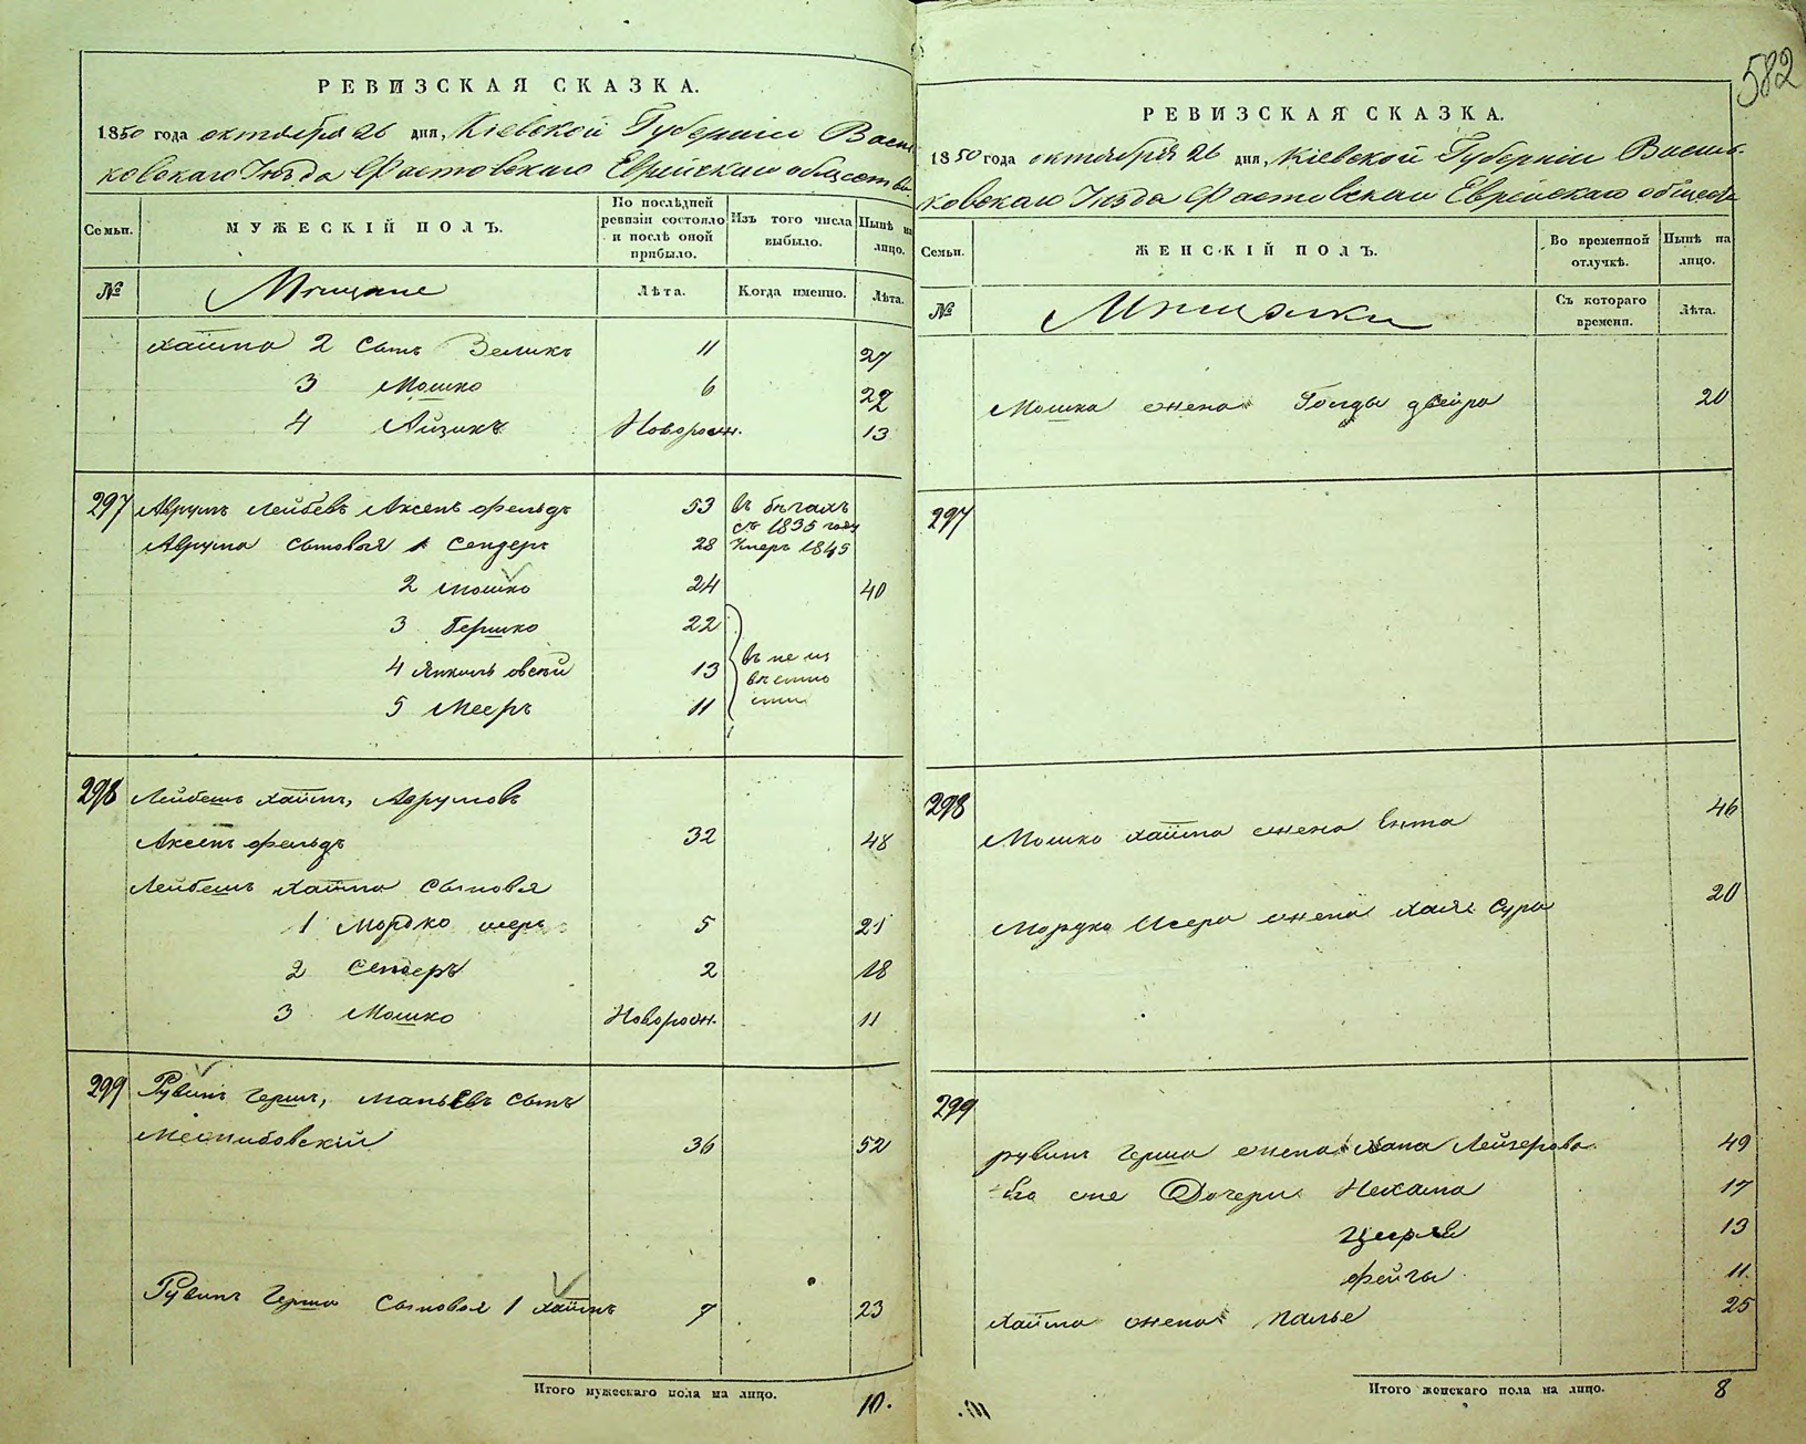 РЕВИЗСКАЯ СКАЗКА.
1850 года октября 26 дня, Кіевской Губерніи Василь-
ковскаго Уезда Фастовскаго Еврейскаго общества
Семьи.
МУЖЕСКІЙ ПОЛЪ.
По послѣдней ревизіи состояло и послѣ оной прибыло.
Изъ того числа выбыло.
Нынѣ на лицо.
№
Мещане
Лѣта.
Когда именно.
Лѣта.
Хаима 2 сынъ Зеликъ 11 27
3 Мошко 6 22
4 Айзикъ Новорожн. 13
297 Аврумъ Лейбевъ Аксенфельдъ 53 въ бѣгахъ
съ 1835 году
Аврума сыновья 1 Сендеръ 28 Умеръ 1845
2 Мошко 24 40
3 Бершко 22
4 Янкель овсей 13 въ не из
вѣстно
сти
5 Мееръ 11
298 Лейбешъ Хаимъ, Аврумовъ
Аксенфельдъ 32 48
Лейбешъ Хаима сыновья
1 Мордко 5 21
2 Сендеръ 2 18
3 Мошко Новорожн. 11
299 Рувинъ Герш, сынъ
Межибовскій 36 52
Рувинъ Герша сыновья 1 Хаимъ 7 23
Итого мужескаго пола на лицо. 10.
582
РЕВИЗСКАЯ СКАЗКА.
1850 года октября 26 дня, Кіевской Губерніи Василь-
ковскаго Уезда Фастовскаго Еврейскаго общества
Семьи.
ЖЕНСКІЙ ПОЛЪ.
Во временной отлучкѣ.
Нынѣ на лицо.
№
Мещанки
Съ котораго времени.
Лѣта.
Мошка жена Голда двейра 20
297
298 46
Мошко Хаима жена Ента
Мордко Исера жена Хая Сура 20
299
рувинъ Герша жена Хана Лейзерова 49
Его же Дочери Нехама 17
13
Фейга 11
Хаима жена 25
Итого женскаго пола на лицо. 8